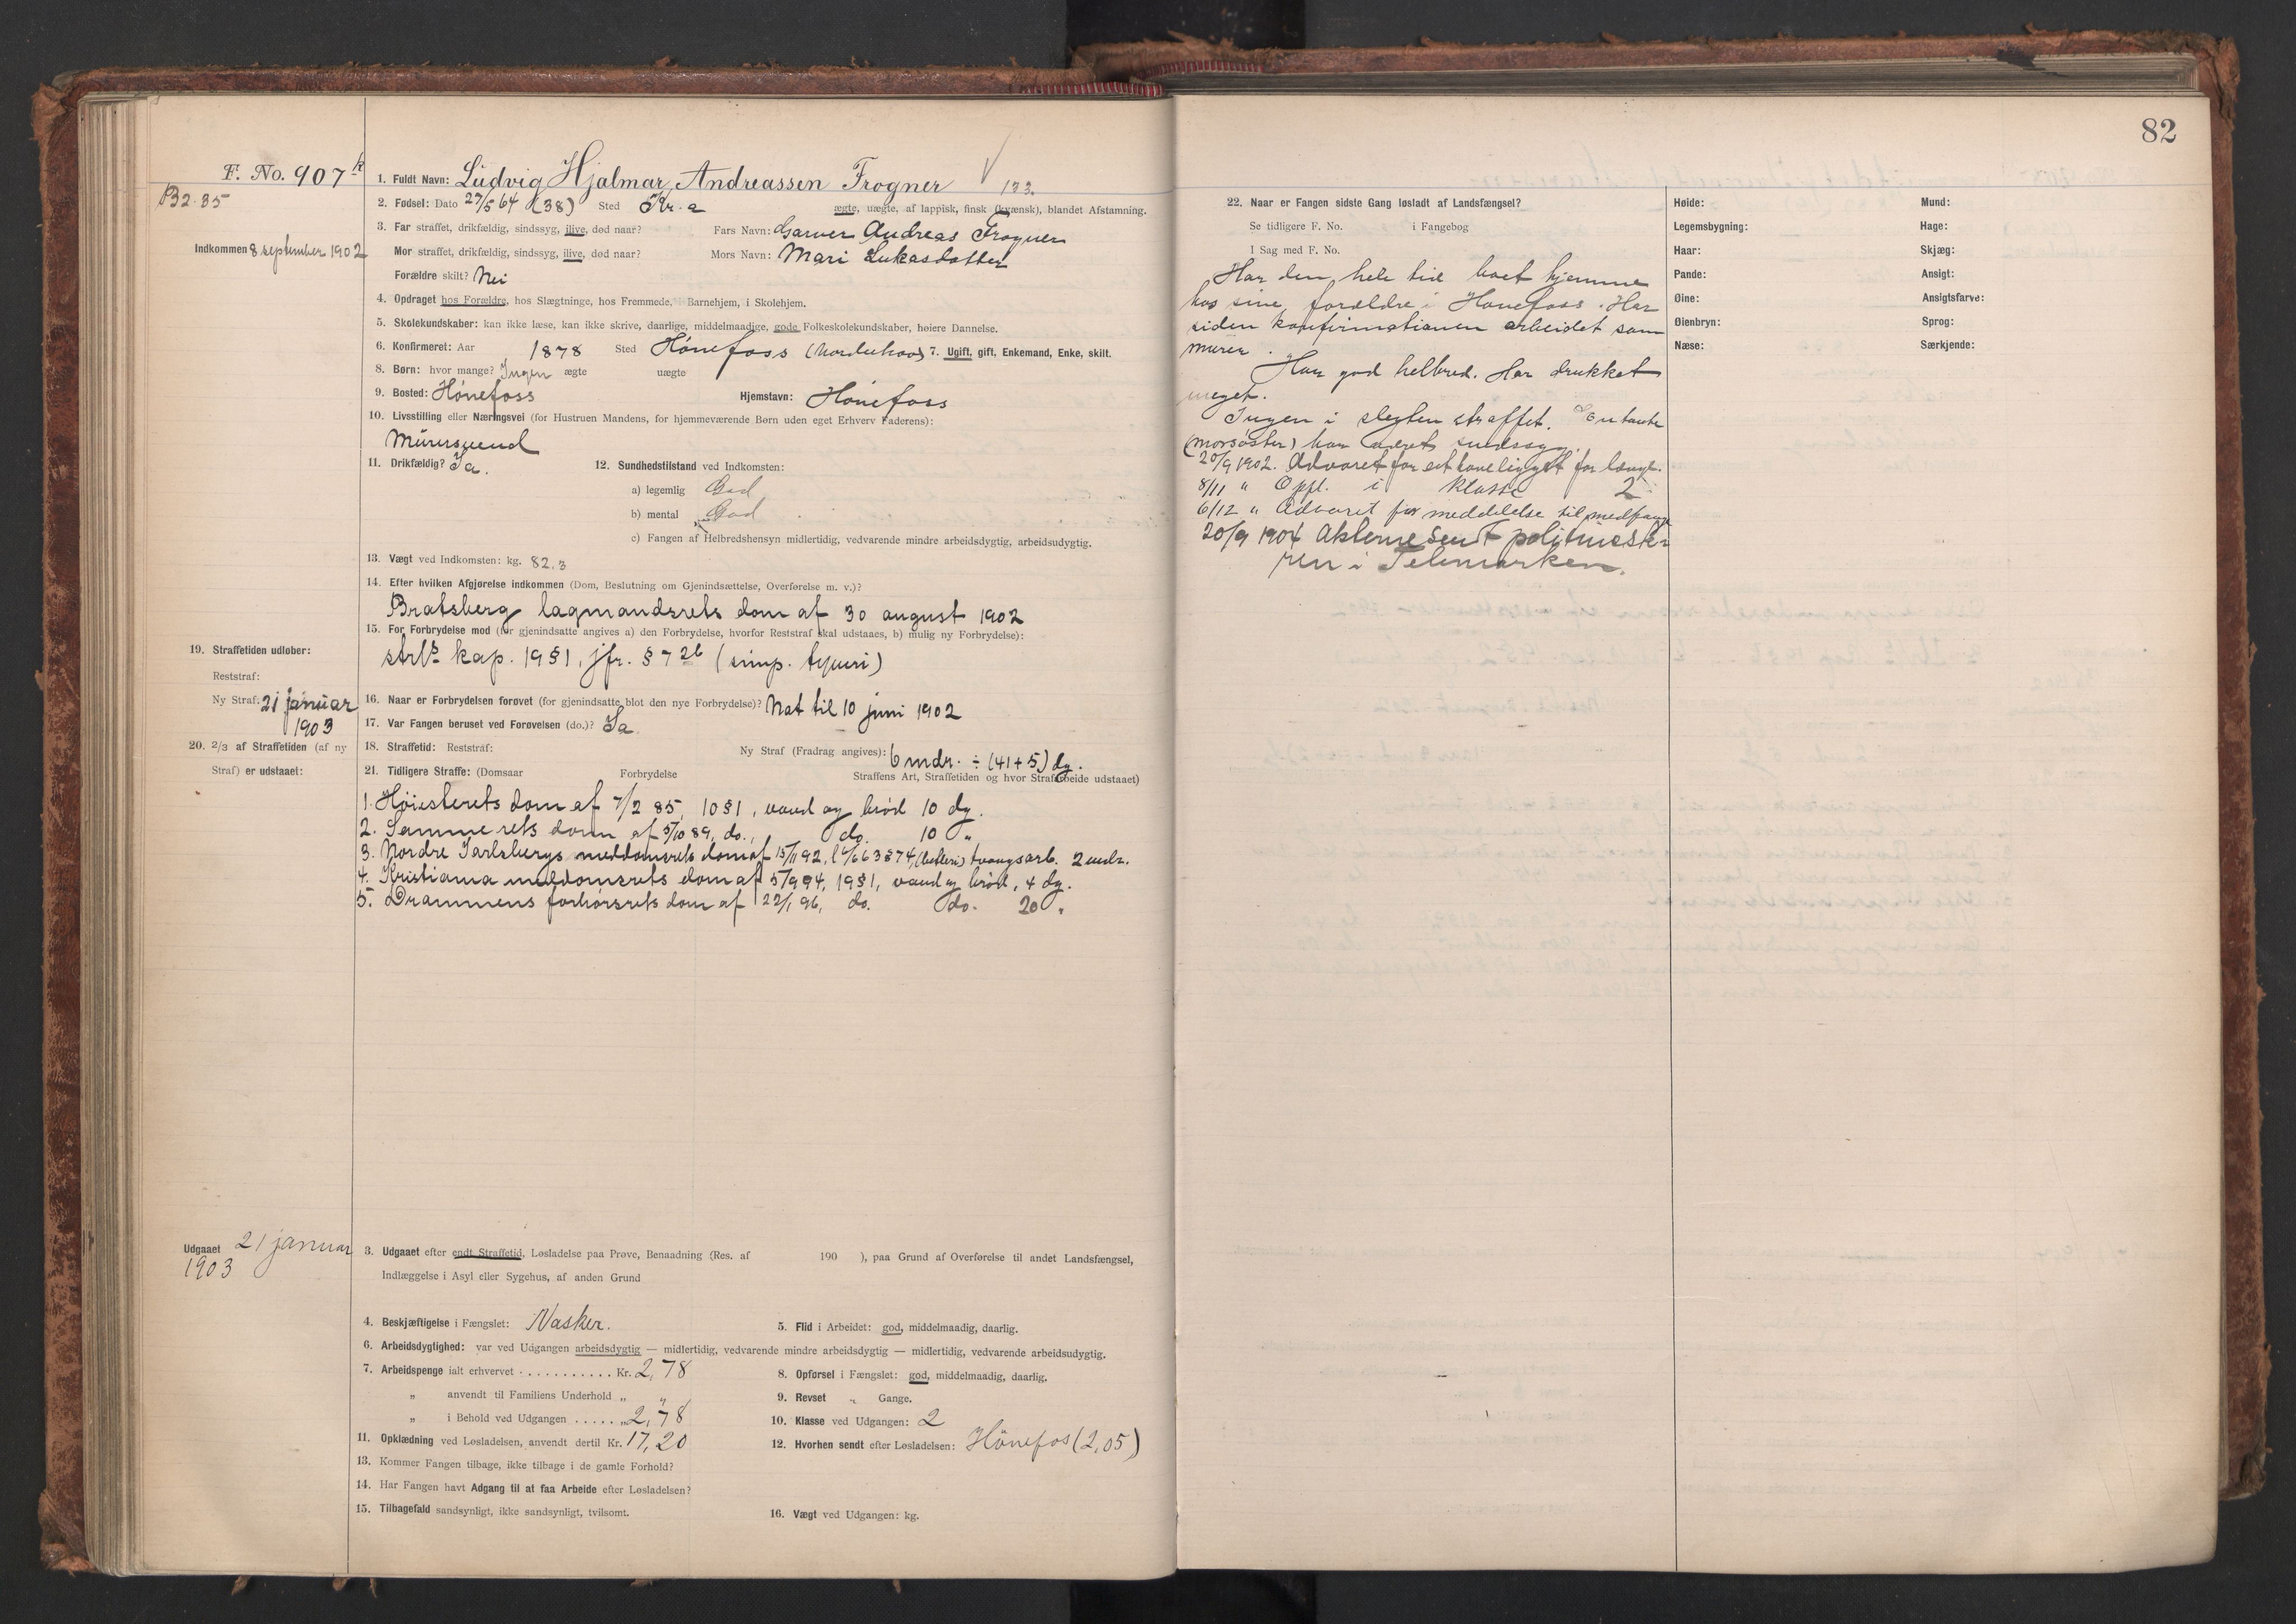 82
F. No. 907 k
B2.35
Indkommen 8 september 1902
1. Fuldt Navn: Ludvig Hjalmar Andreassen Frogner 133.
2. Fødsel: Dato 27/5 64 (38) Sted Kr.a ægte, uægte, af lappisk, finsk (kvænsk), blandet Afstamning.
3. Far straffet, drikfældig, sindssyg, ilive, død naar? Fars Navn: Garver Andreas Frogner
Mor straffet, drikfældig, sindssyg, ilive, død naar? Mors Navn: Mari Lukasdatter
Forældre skilt? Nei
4. Opdraget hos Forældre, hos Slægtninge, hos Fremmede, Barnehjem, i Skolehjem.
5. Skolekundskaber: kan ikke læse, kan ikke skrive, daarlige, middelmaadige, gode Folkeskolekundskaber, høiere Dannelse.
6. Konfirmeret: Aar 1878 Sted Hönefoss (Norderhov) 7. Ugift, gift, Enkemand, Enke, skilt.
8. Børn: hvor mange? Ingen ægte uægte
9. Bosted: Hönefoss Hjemstavn: Hönefoss
10. Livsstilling eller Næringsvei (for Hustruen Mandens, for hjemmeværende Børn uden eget Erhverv Faderens):
Murersvend
11. Drikfældig? Ja. 12. Sundhedstilstand ved Indkomsten:
a) legemlig God
b) mental God
c) Fangen af Helbredshensyn midlertidig, vedvarende mindre arbeidsdygtig, arbeidsudygtig.
13. Vægt ved Indkomsten: kg. 82.3
14. Efter hvilken Afgjørelse indkommen (Dom, Beslutning om Gjenindsættelse, Overførelse m. v.)?
Bratsberg lagmandsrets dom af 30 august 1902
15. For Forbrydelse mod (for gjenindsatte angives a) den Forbrydelse, hvorfor Reststraf skal udstaaes, b) mulig ny Forbrydelse):
strl's kap. 19 § 1, jfr. § 7 2b (simp. tyveri)
19. Straffetiden udløber:
Reststraf:
Ny Straf: 21 januar
1903
16. Naar er Forbrydelsen forøvet (for gjenindsatte blot den nye Forbrydelse)? Nat til 10 juni 1902
17. Var Fangen beruset ved Forøvelsen (do.)? Ja.
20. 2/3 af Straffetiden (af ny
Straf) er udstaaet:
18. Straffetid: Reststraf: Ny Straf (Fradrag angives): 6 mdr. ÷ (41+5) dg.
21. Tidligere Straffe: (Domsaar Forbrydelse Straffens Art, Straffetiden og hvor Strafarbeide udstaaet)
1. Höiesterets dom af 7/2 85, 10 § 1, vand og bröd 10 dg.
2. Samme rets dom af 5/10 89, do., do. 10 "
3. Nordre Jarlsbergs meddomsrets dom af 15/11 92, l 6/6 63 § 74, (betleri) tvangsarb. 2 mdr.
4. Kristiania meddomsrets dom af 5/9 94, 19 § 1, vand og bröd, 4 dg.
5. Drammens forhörsrets dom af 22/1 96, do. do. 20 "
Udgaaet 21 januar
1903
3. Udgaaet efter endt Straffetid, Løsladelse paa Prøve, Benaadning (Res. af 190 ), paa Grund af Overførelse til andet Landsfængsel,
Indlæggelse i Asyl eller Sygehus, af anden Grund
4. Beskjæftigelse i Fængslet: Vasker. 5. Flid i Arbeidet: god, middelmaadig, daarlig.
6. Arbeidsdygtighed: var ved Udgangen arbeidsdygtig — midlertidig, vedvarende mindre arbeidsdygtig — midlertidig, vedvarende arbeidsudygtig.
7. Arbeidspenge ialt erhvervet . . . . . . . . . . . Kr. 2,78 8. Opførsel i Fængslet: god, middelmaadig, daarlig.
„ anvendt til Familiens Underhold „ " 9. Revset „ Gange.
„ i Behold ved Udgangen . . . . . „ 2,78 10. Klasse ved Udgangen: 2
11. Opklædning ved Løsladelsen, anvendt dertil Kr. 17,20 12. Hvorhen sendt efter Løsladelsen: Hönefos (2,05)
13. Kommer Fangen tilbage, ikke tilbage i de gamle Forhold?
14. Har Fangen havt Adgang til at faa Arbeide efter Løsladelsen?
15. Tilbagefald sandsynligt, ikke sandsynligt, tvilsomt. 16. Vægt ved Udgangen: kg.
22. Naar er Fangen sidste Gang løsladt af Landsfængsel?
Se tidligere F. No. i Fangebog
I Sag med F. No.
Har den hele tid boet hjemme
hos sine forældre i Hönefoss. Har
siden konfirmationen arbeidet som
murer.
Har god helbred. Har drukket
meget.
Ingen i slegten straffet. En tante
(morsöster) har været sindssyg.
20/9 1902. Advaret for at have ligget for længe.
8/11 " Oppl. i klasse 2.
6/12 " Advaret for meddelelse til medfange
20/9 1904 Akterne sendt politimeste-
ren i Telemarken.
Høide:
Legemsbygning:
Haar:
Pande:
Øine:
Øienbryn:
Næse:
Mund:
Hage:
Skjæg:
Ansigt:
Ansigtsfarve:
Sprog:
Særkjende: